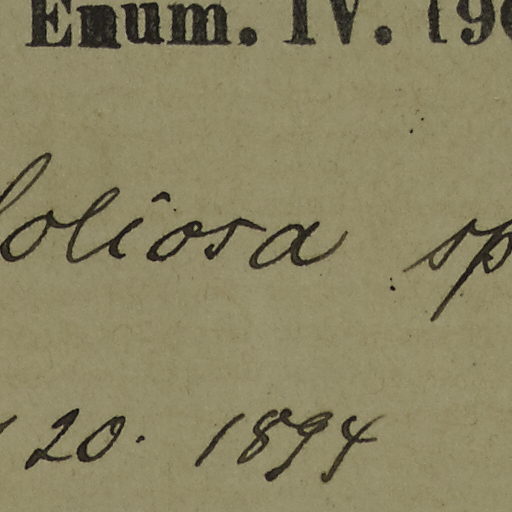 Enum. IV. 190
foliosa sp
20. 1894